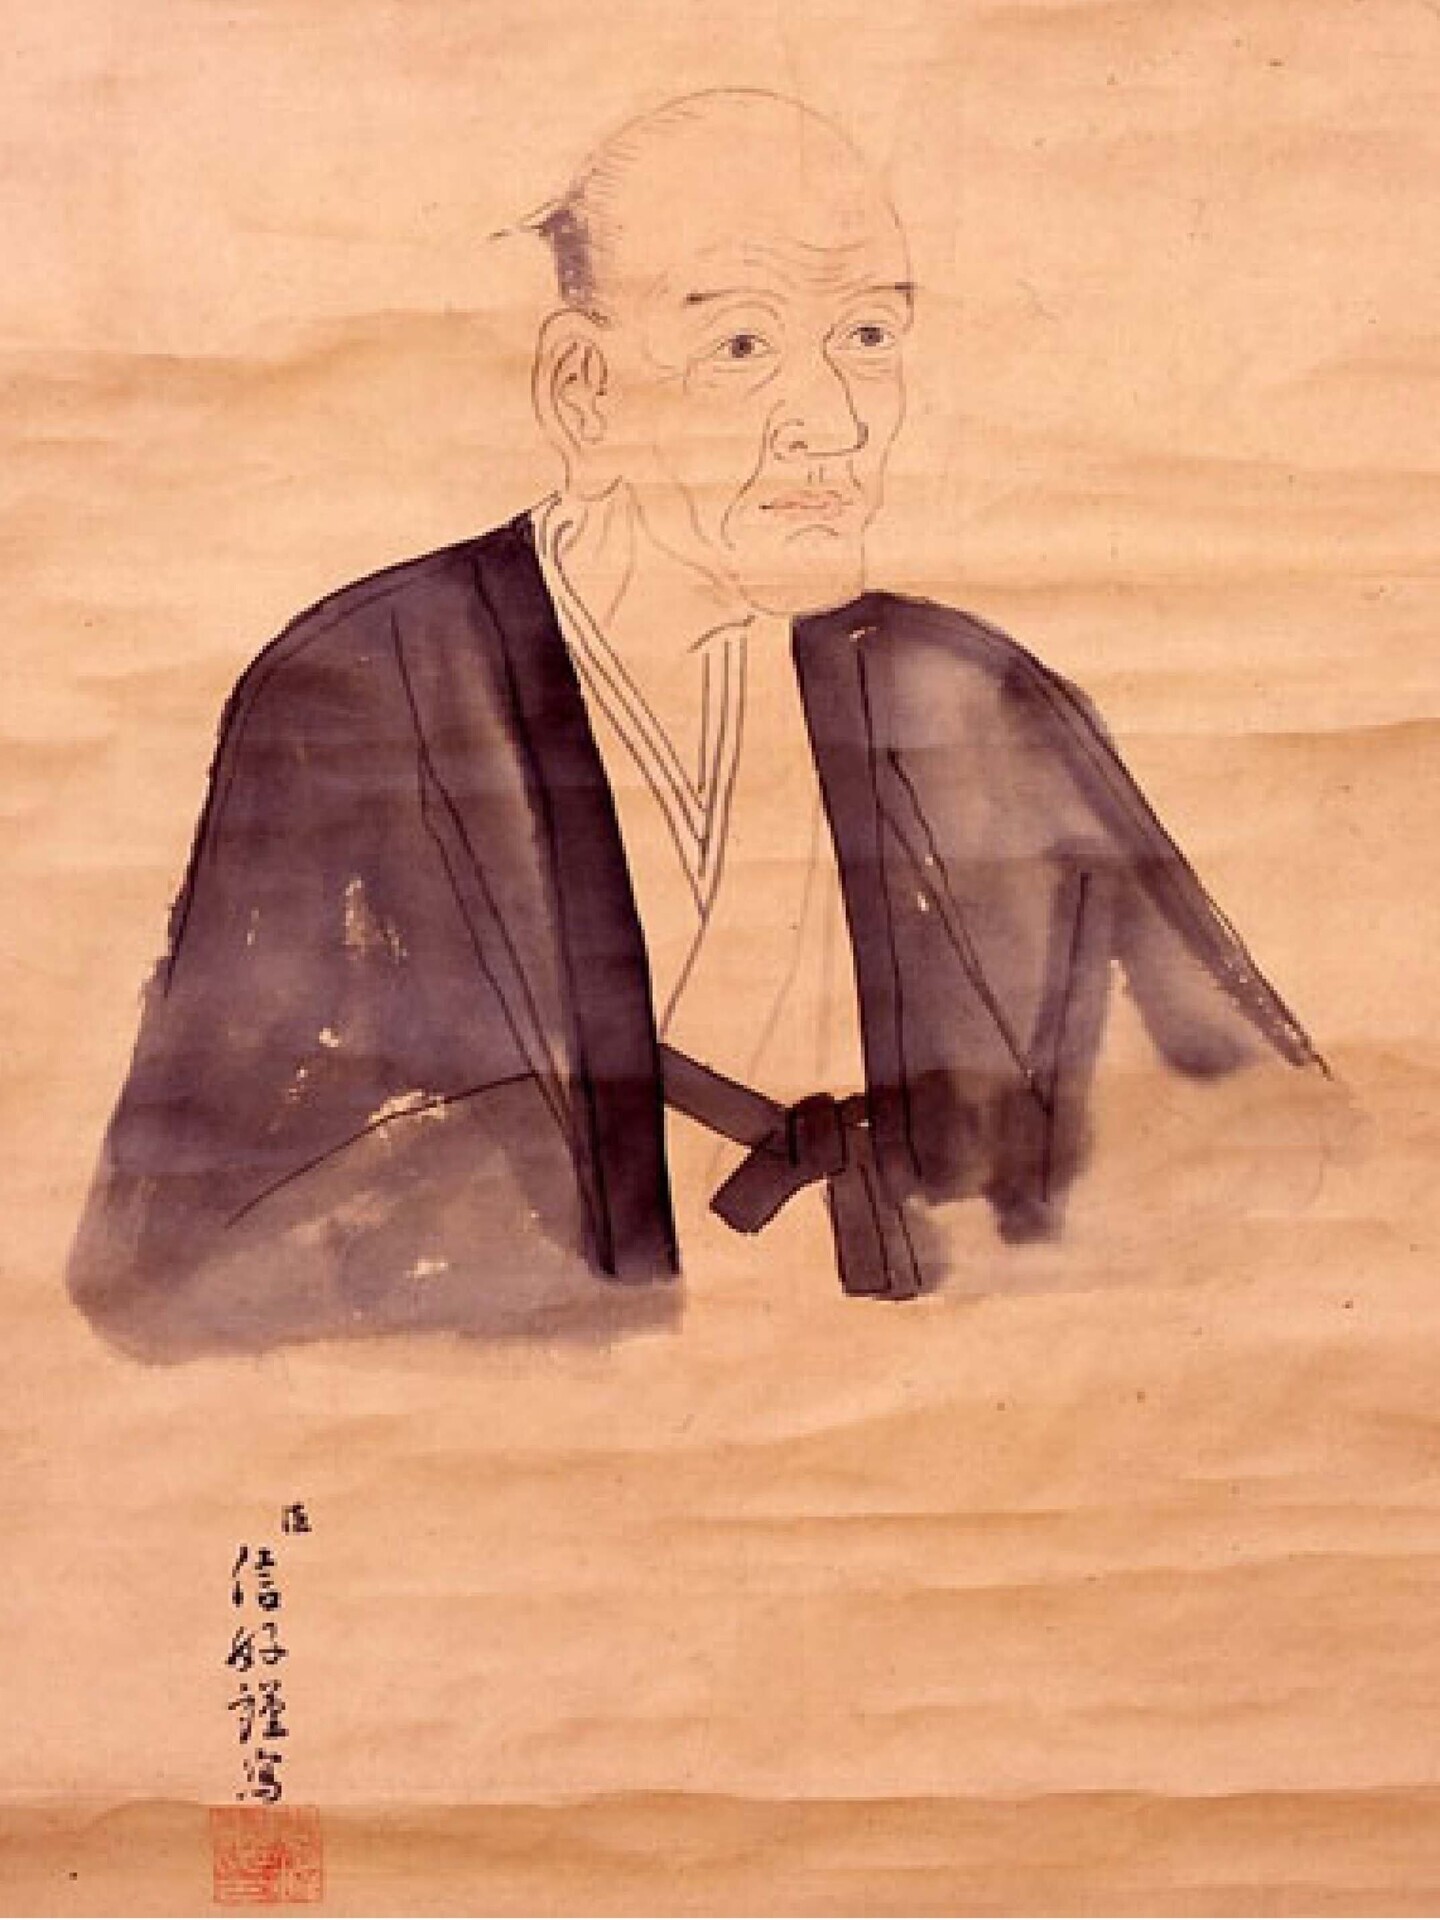 信好謹寫